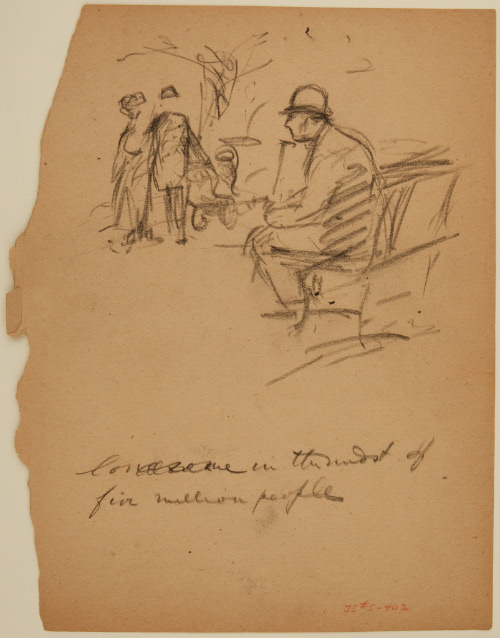 lonesome in the midst of
five million people
JS#5-402